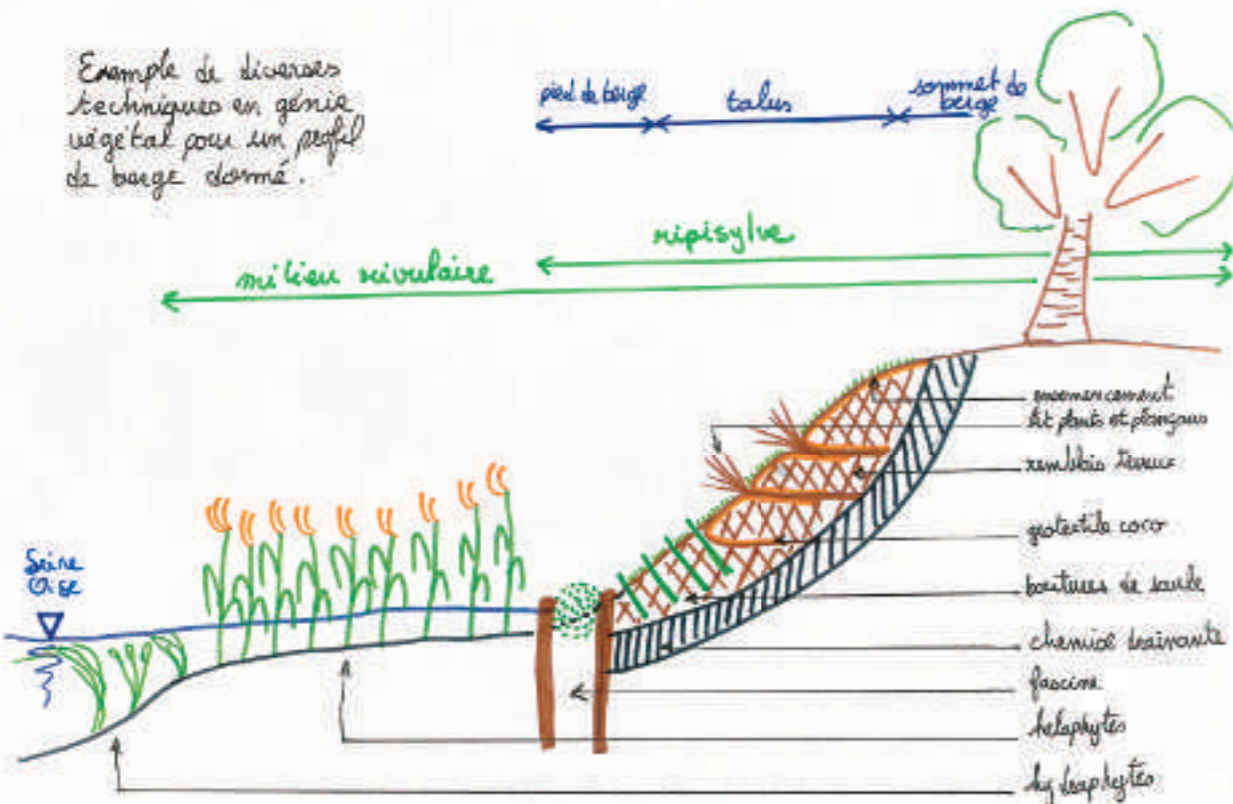 Exemple de diverses
techniques en génie
végétal pour un profil
de berge donné.
pied de berge
talus
sommet de
berge
ripisylve
milieu rivulaire
Seine
Oise
ensemencement
lit plants et plançons
remblais terreux
géotextile coco
boutures de saule
chemise drainante
fascine
hélophytes
hydrophytes